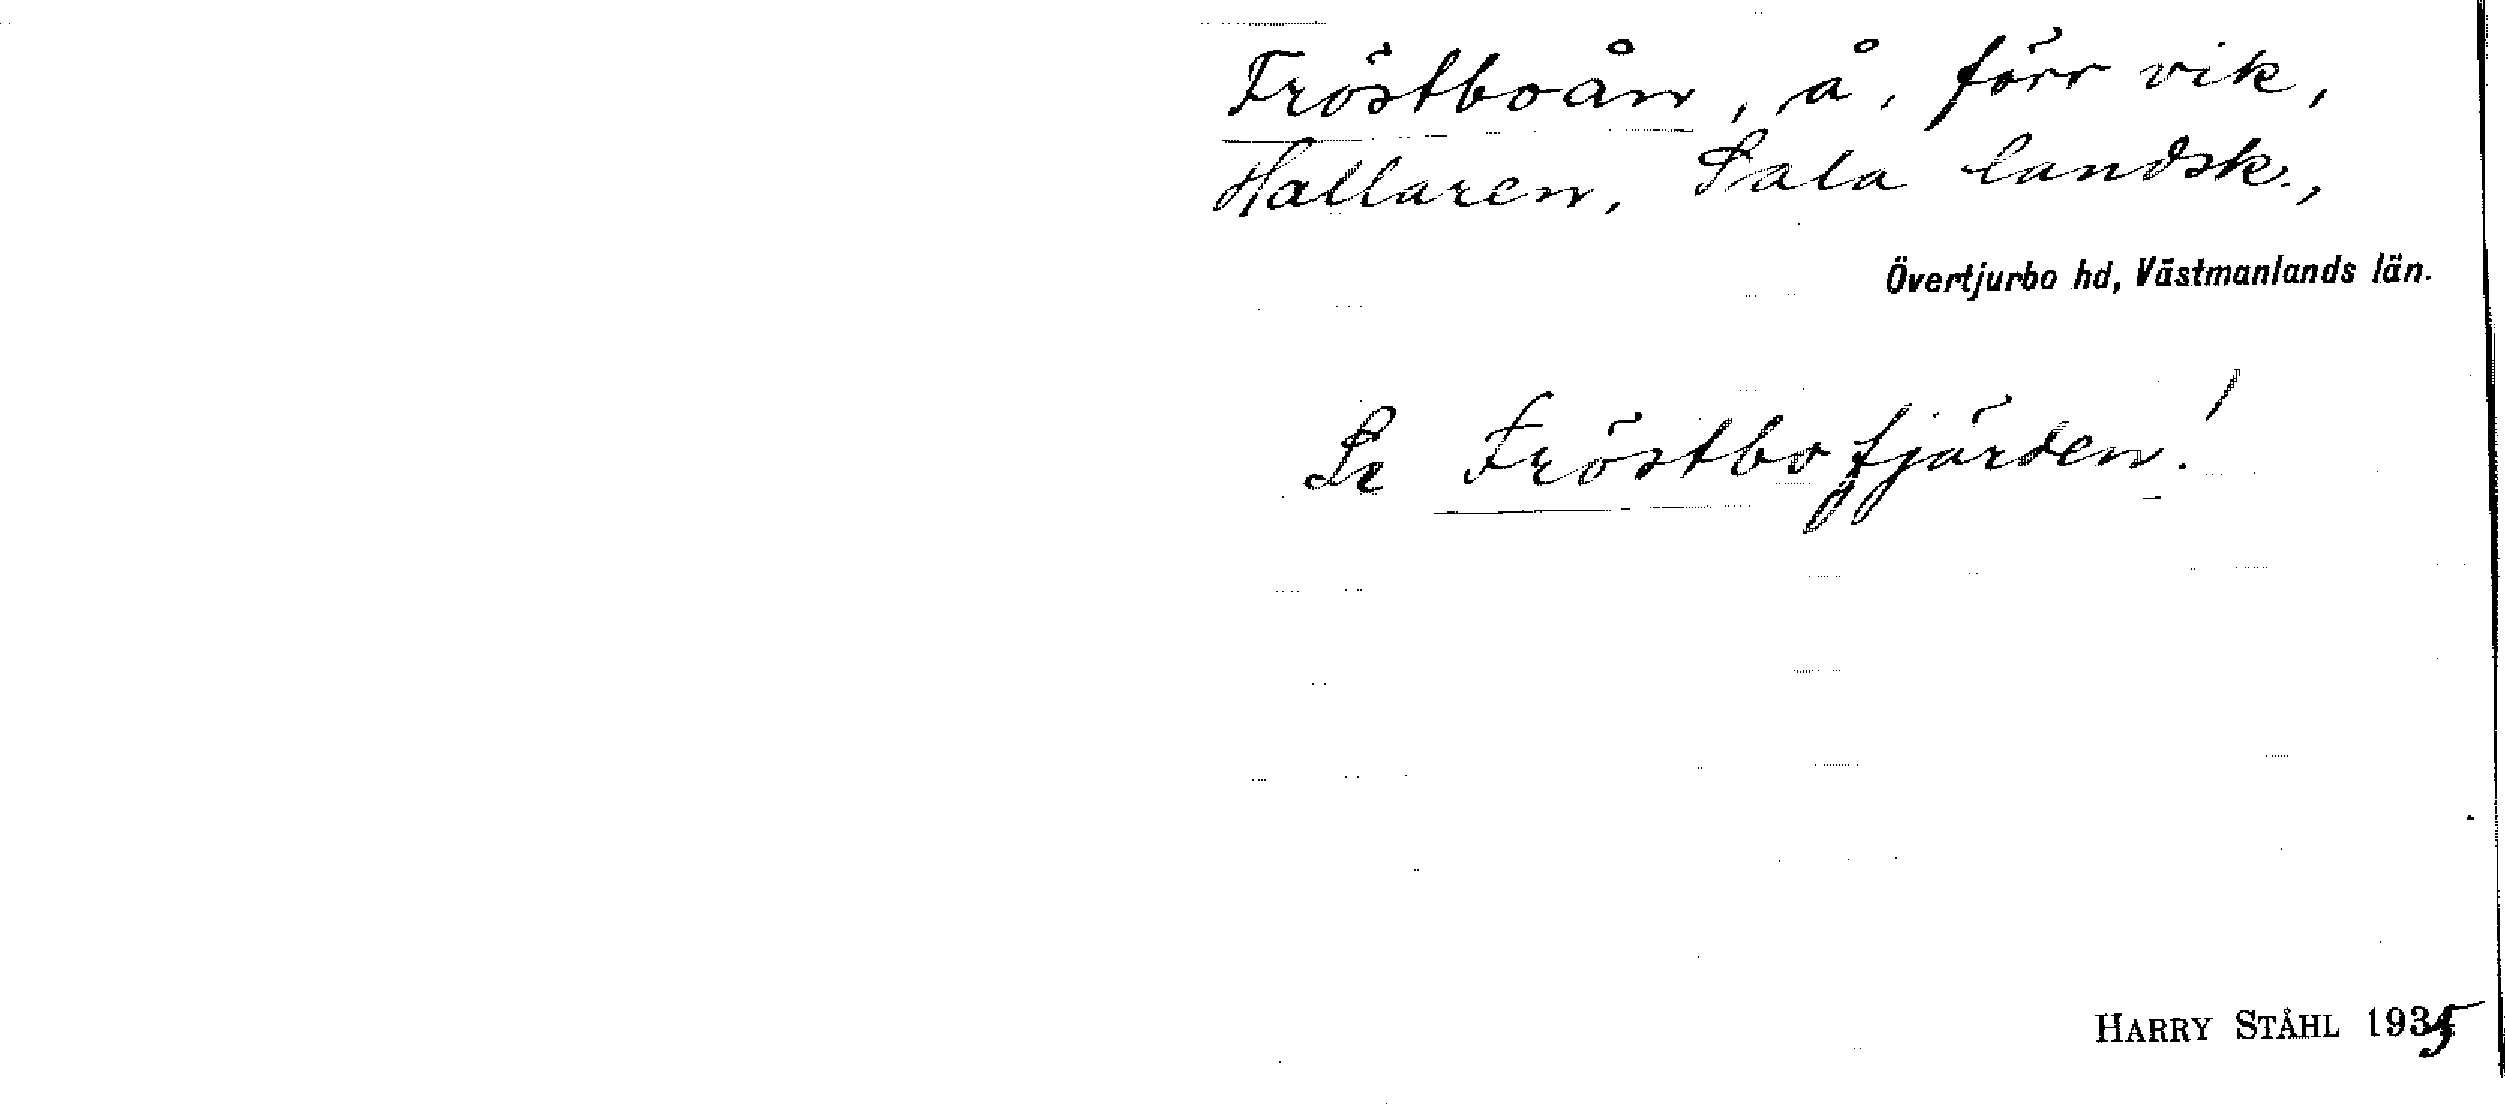 Fröstboån, å, förr vik,
Hallaren, Sala landsk.,
Övertjurbo hd, Västmanlands län.
Se Fröstbofjärden!
HARRY STÅHL 1935